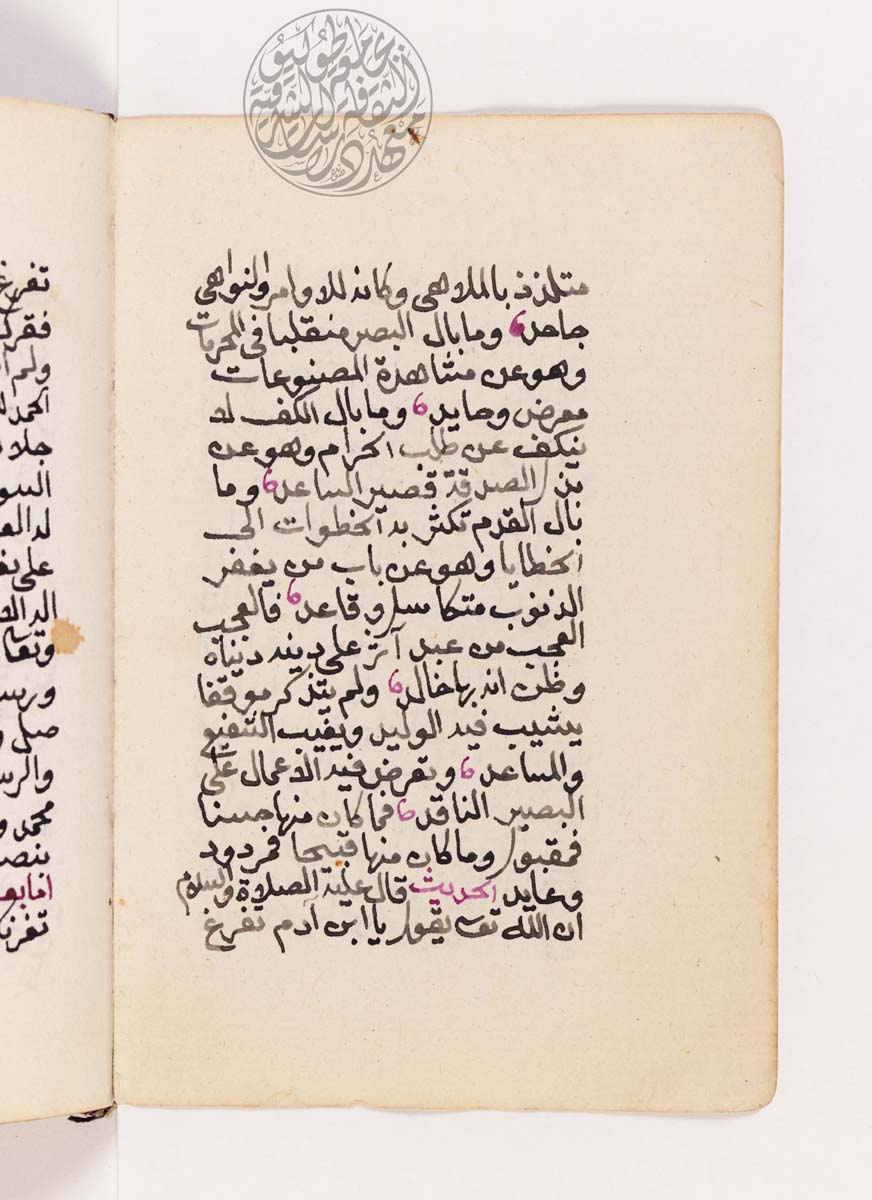 متلذذ بالملاهي وكانه للاوامر والنواهي
جاحد وما بال البصر منقلبا في المحرمات
وهو عن مشاهدة المصنوعات
معرض وحايد وما بال الكف لا
ينكف عن طلب الحرام وهو عن
بذل الصدقة قصير الساعد وما
بال القدم تكثر به الخطوات الى
الخطايا وهو عن باب من يغفر
الذنوب متكاسل وقاعد فالعجب
العجب من عبد آثر على دينه دنياه
وظن انه بها خالد ولم يتذكر موقفا
يشيب فيه الوليد ويغيب الشفيع
والمساعد وتعرض فيه الاعمال على
البصير الناقد فما كان منها حسنا
فمقبول وما كان منها قبيحا فمردود
وعايد الحديث قال عليه الصلاة والسلام
ان الله تعه يقول يا ابن آدم تفرغ
تفرغ
ولم
على
وتعا
والر
محمد و